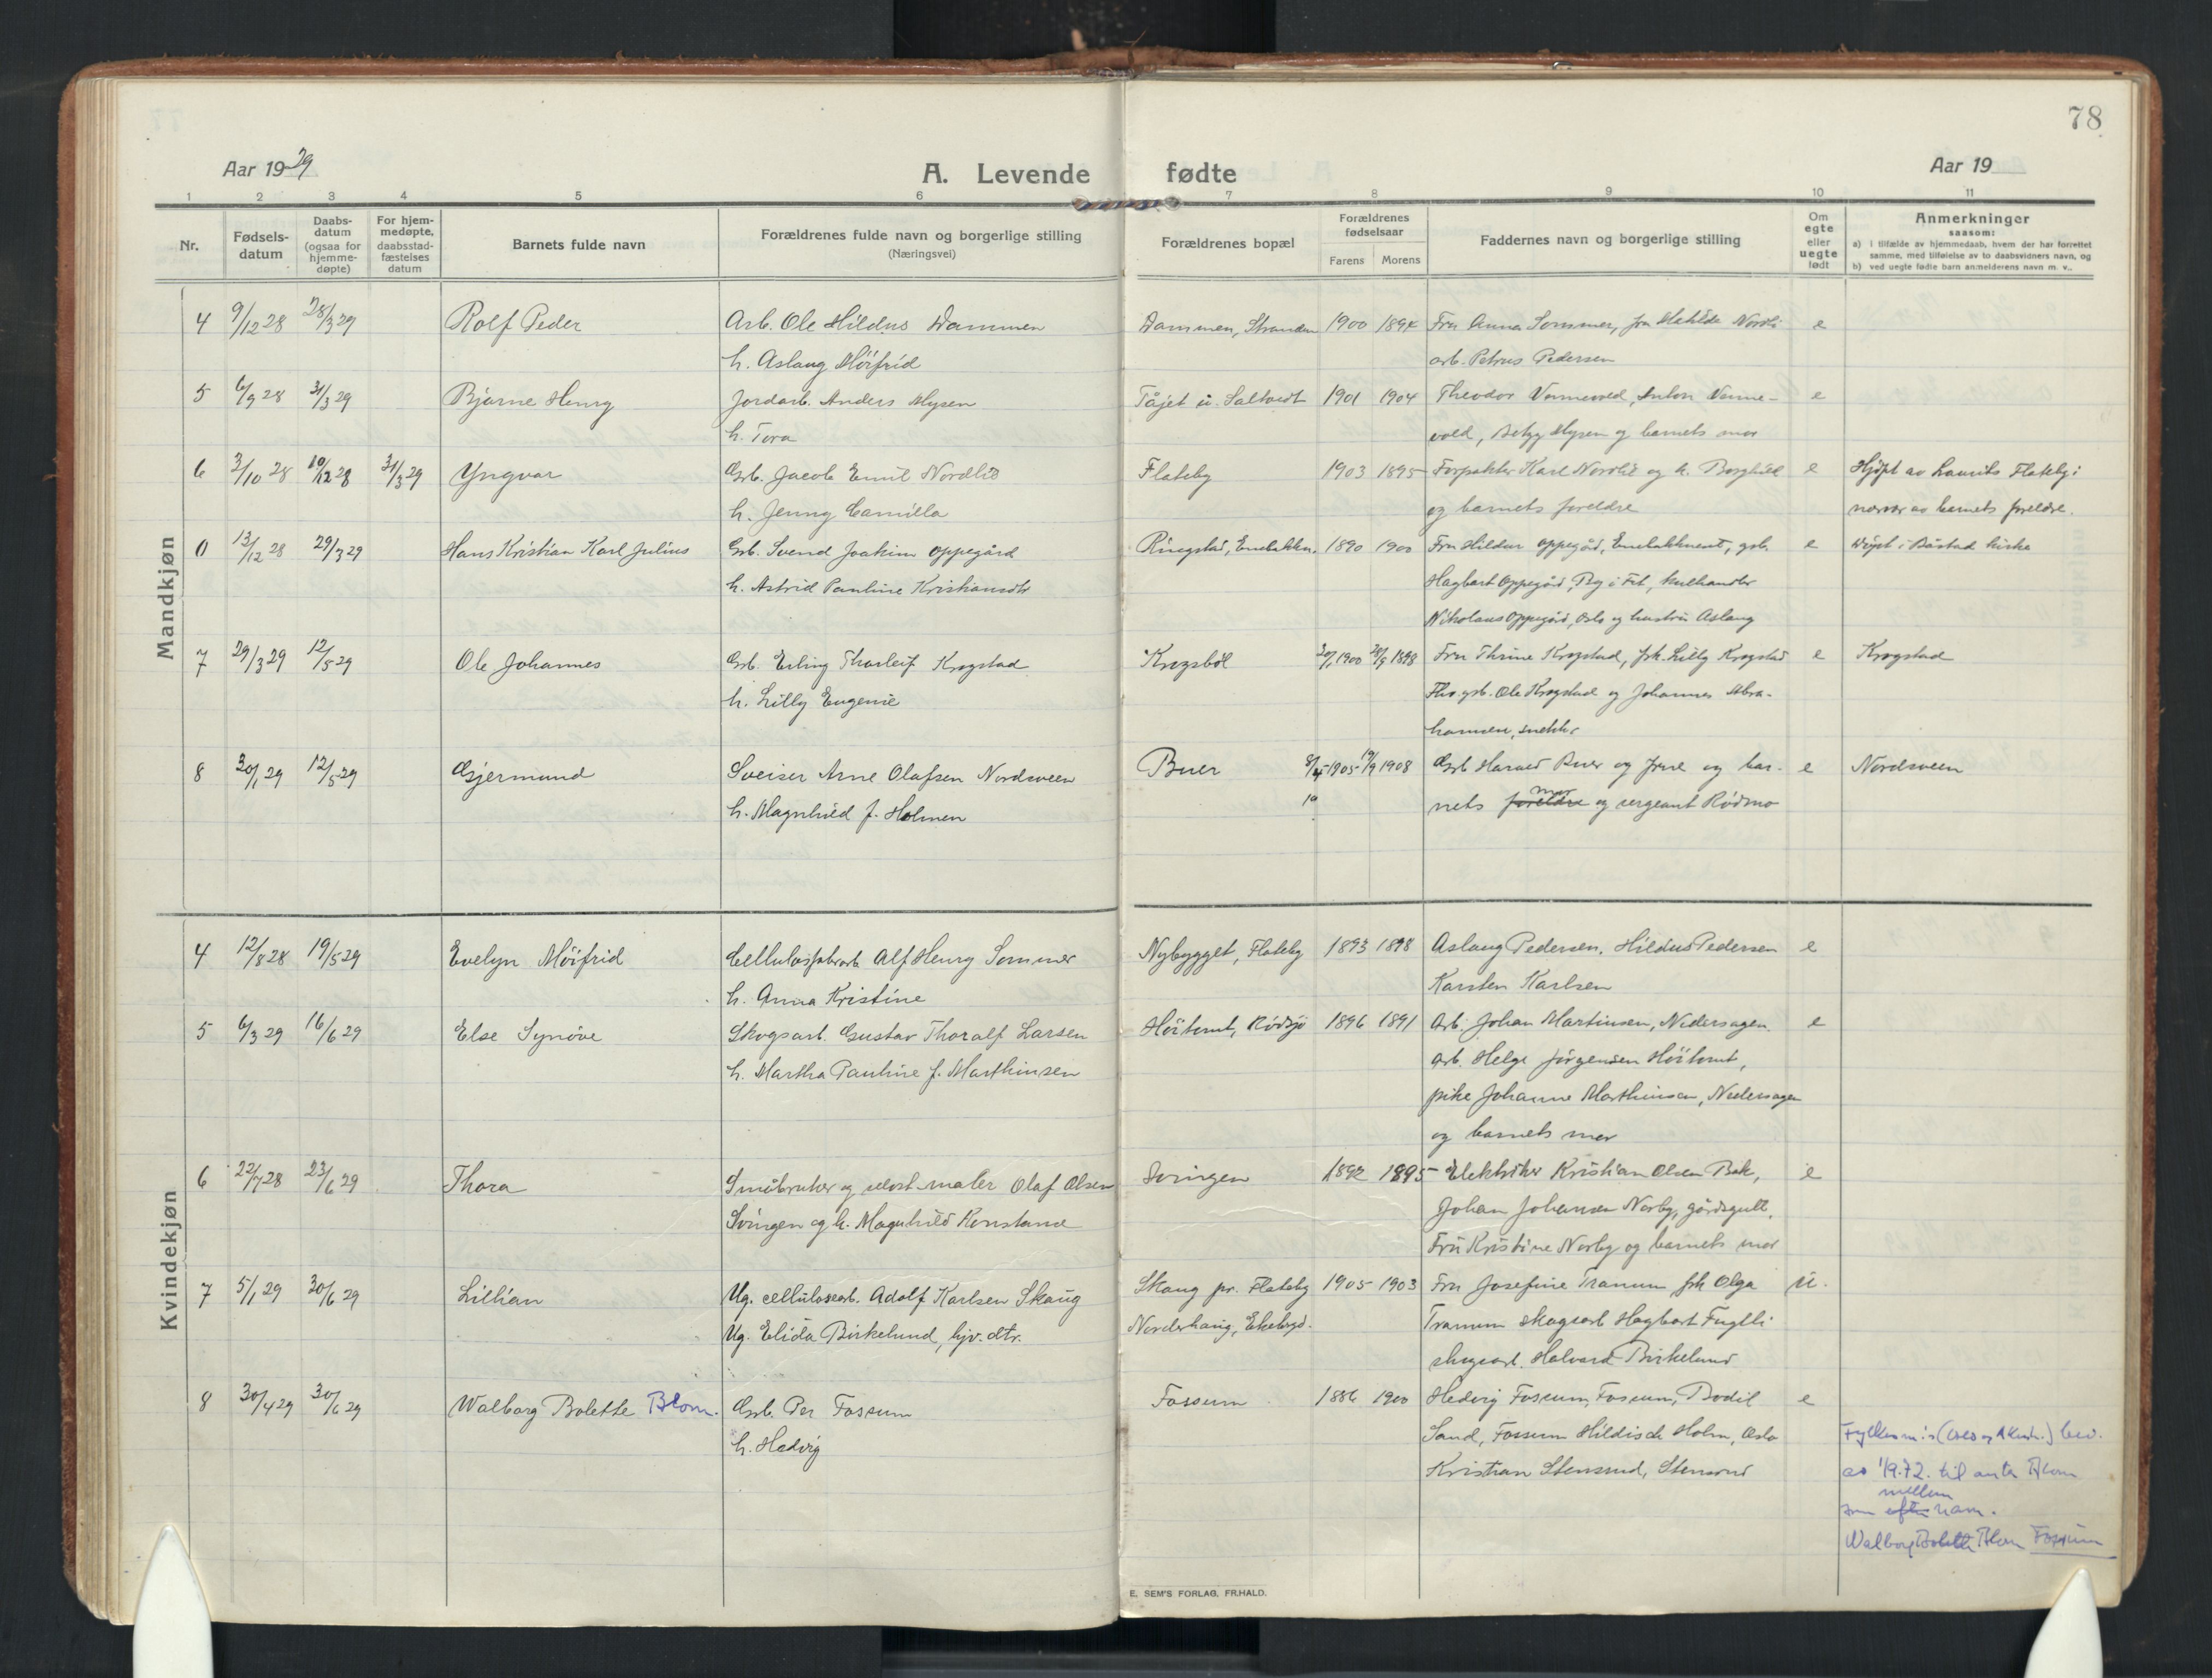 78
Aar 1929
A. Levende fødte
Aar 19
1 2 3 4 5 6 7 8 9 10 11
Nr.
Fødsels-
datum
Daabs-
datum
(ogsaa for
hjemme-
døpte)
For hjem-
medøpte,
daabsstad-
fæstelses
datum
Barnets fulde navn
Forældrenes fulde navn og borgerlige stilling
(Næringsvei)
Forældrenes bopæl
Forældrenes
fødselsaar
Farens Morens
Faddernes navn og borgerlige stilling
Om
egte
eller
uegte
født
Anmerkninger
saasom:
a) i tilfælde av hjemmedaab, hvem der har forrettet
samme, med tilføielse av to daabsvidners navn, og
b) ved uegte fødte barn anmelderens navn m. v..
Mandkjøn
4 9/12 28 28/3 29 Rolf Peder Arb. Ole Hildus Dammen Dammen, 1900 1894 Fru Anna Sommer, fru Mathilde Nordli e
h. Aslaug Möifrid arb. Petrus Pedersen
5 6/9 28 31/3 29 Bjarne Henry Jordarb. Anders Mysen Tåjet u. Saltvedt 1901 1904 Theodor Vennevold, Anton Venne- e
h. Tora vold, Mysen og barnets mor
6 3/10 28 10/12 28 31/3 29 Yngvar Grb. Jacob Emil Nordlie Flateby 1903 1895 Forpakter Karl Nordlie og h. Borghild e Hjdpt av Laurits Flateby i
h. Jenny Camilla og barnets foreldre nærvær av barnets foreldre.
0 13/12 28 29/3 29 Hans Kristian Karl Julius Grb. Svend Joakim Oppegård Ringstad, Enebakkn. 1890 1900 Fru Hildur Oppegård, Enebakkneset, grb. e Döpt i Båstad kirke
h. Astrid Pauline Kristiansdtr Hagbart Oppegård, By i Fet, kulhandler
Nikolaus Oppegård, Oslo og hustru Aslaug
7 29/3 29 12/5 29 Ole Johannes Grb. Erling Thorleif Krogstad Krogsböl 1900 1898 Fru Thrine Krogstad, frk. Lilly Krogstad e Krogstad
h. Lilly Eugenie grb. Ole Krogstad og Johannes Abra-
hamsen, snekker
8 30/1 29 12/5 29 Gjermund Sveiser Arne Olafsen Nordsveen Buer 1905 19/9 1908 Grb Harald Buer og frue og bar- e Nordsveen
h. Magnhild f. Holmen nets foreldre mor og sergeant Rödmo
Kvindekjøn
4 12/8 28 19/5 29 Evelyn Möifrid Cellulosfabrarb. Alf Henry Sommer Nybygget, Flateby 1893 1898 Aslaug Pedersen, Hildus Pedersen e
h. Anna Kristine Karsten Karlsen
5 6/3 29 16/6 29 Else Synöve Skogsarb. Gustav Thoralf Larsen Höitomt, Rödsjö 1896 1891 Arb. Johan Martinsen, Nedersagen e
h. Martha Pauline f. Marthinsen arb. Helge Jörgensen Höitomt,
pike Johanne Marthinsen, Nedersagen
og barnets mor
6 22/7 28 23/6 29 Thora Småbruker og maler Olaf Olsen Svingen 1892 1895 Elektriker Kristian Olsen Bak, e
Svingen og h. Magnhild Konstanse Johan Johansen Norby, gårdsgutt,
Fru Kristine Norby og barnets mor
7 5/1 29 30/6 29 Lillian Ug. cellulosearb. Adolf Karlsen Skaug Skaug pr. Flateby 1905 1903 Fru Josefine Tranum frk Olga u.
Ug. Elida Birkelund, hjv. dtr. Norderhaug, Ekebgd. Tranum skogsarb Hagbart Fuglli
skogsarb. Halvard Birkelund
8 30/4 29 30/6 29 Walborg Bolette Blom. Grb. Per Fossum Fossum 1886 1900 Hedvig Fossum, Fossum, Bodil e
h. Hedvig Sand, Fossum Hildisch Holm, Oslo
Kristian Stensrud, Stensrud
Fylkesm. i (Oslo og Akersh.) bev.
av 1/9.72. til anta Blom
mellom
som efter navn.
Walborg Bolette Blom Fossum
E. SEM'S FORLAG, FR.HALD.